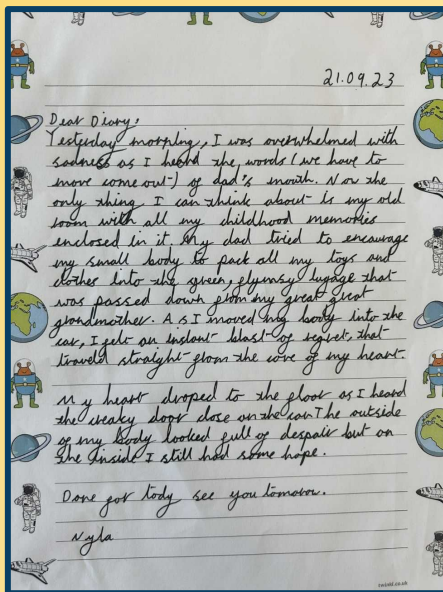 21.09.23
Dear Diary,
Yesterday morning, I was overwhelmed with
sadness as I heard the words (we have to
move come out) of dad's mouth. Now the
only thing I can think about is my old
room with all my childhood memories
enclosed in it. My dad tried to encourage
my small body to pack all my toys and
clothes into the green, flymsy lugage that
was passed down from my great great
grandmother. As I moved my body into the
car, I felt an instant blast of regret, that
traveld straight from the core of my heart.
My heart droped to the floor as I heard
the creaky door close on the car. The outside
of my body looked full of despair but on
the inside I still had some hope.
Done for tody see you tomorow.
Nyla
twinkl.co.uk